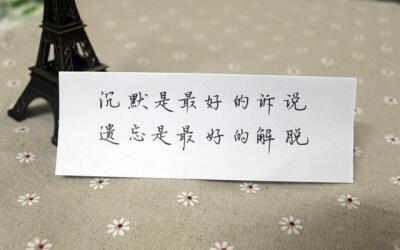 沉默是最好的诉说
遗忘是最好的解脱